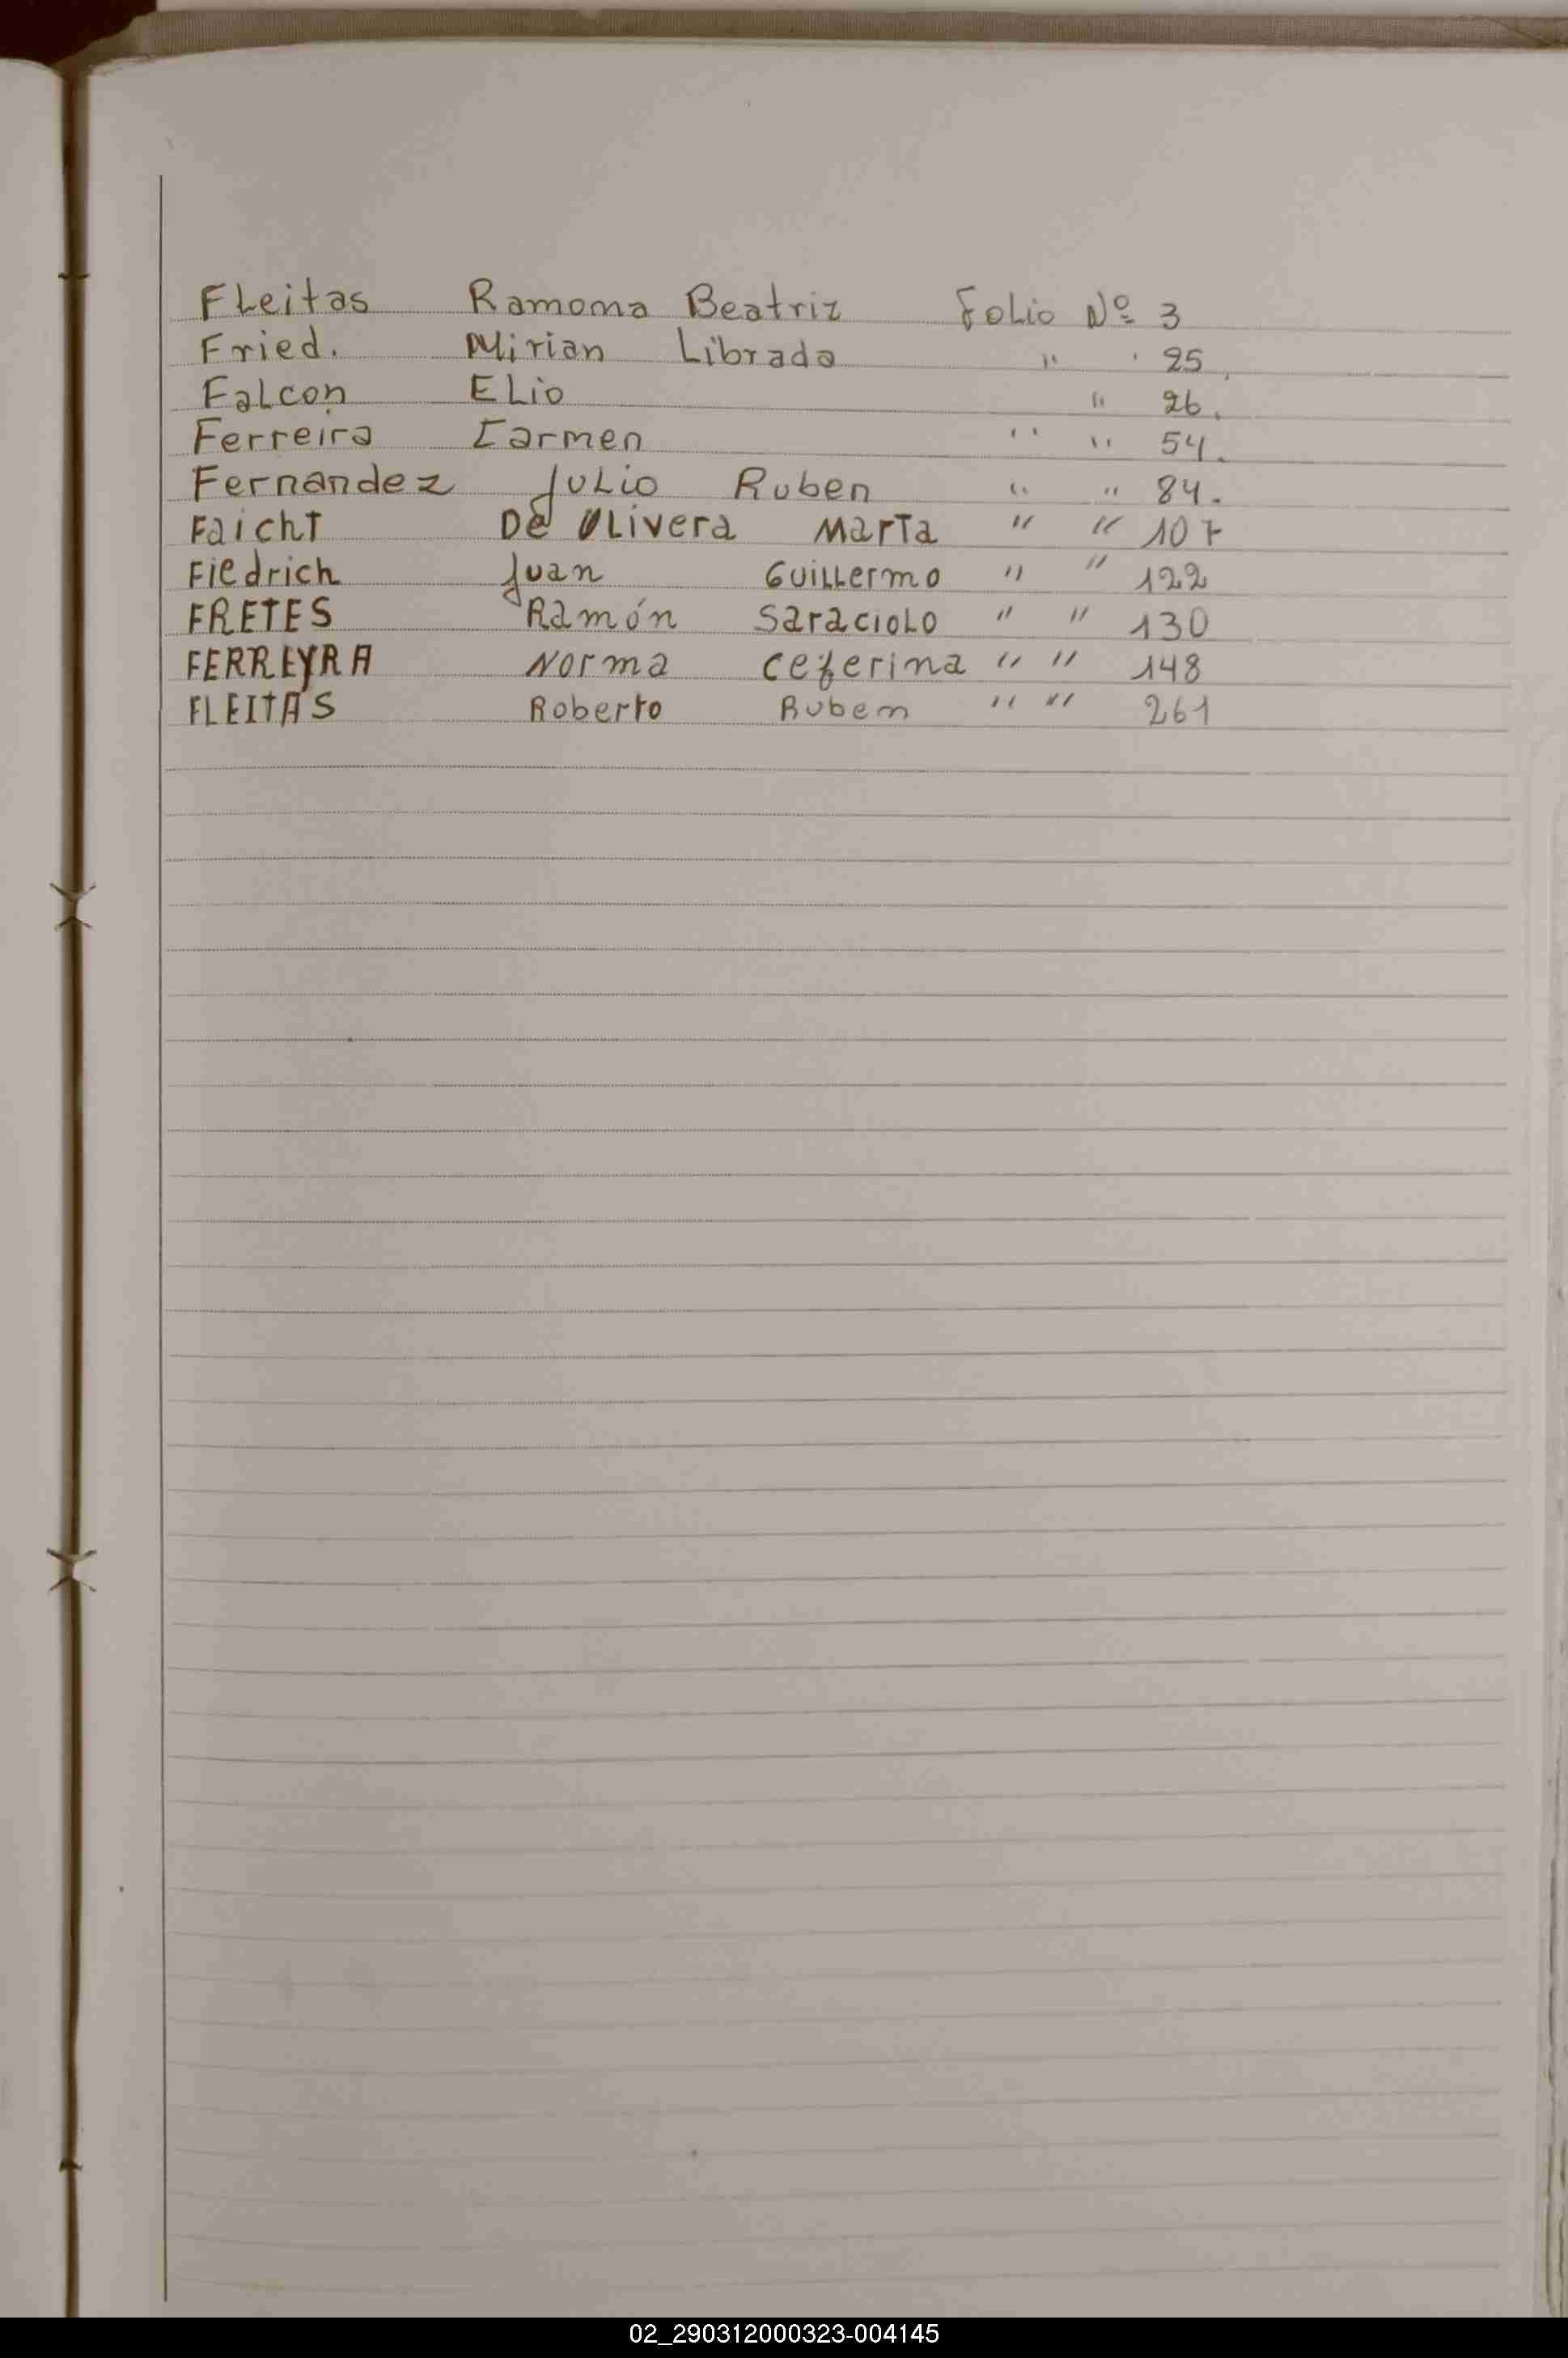 Fleitas Ramona Beatriz Folio Nº 3
Fried. Mirian Librada " " 25.
Falcon Elio " 26.
Ferreira Carmen " " 54.
Fernandez Julio Ruben " " 84.
Faicht De Olivera Marta " " 107
Fiedrich Juan Guillermo " " 122
FRETES Ramón Saraciolo " " 130
FERREYRA Norma Ceferina " " 148
FLEITAS Roberto Ruben " " 261
02_290312000323-004145